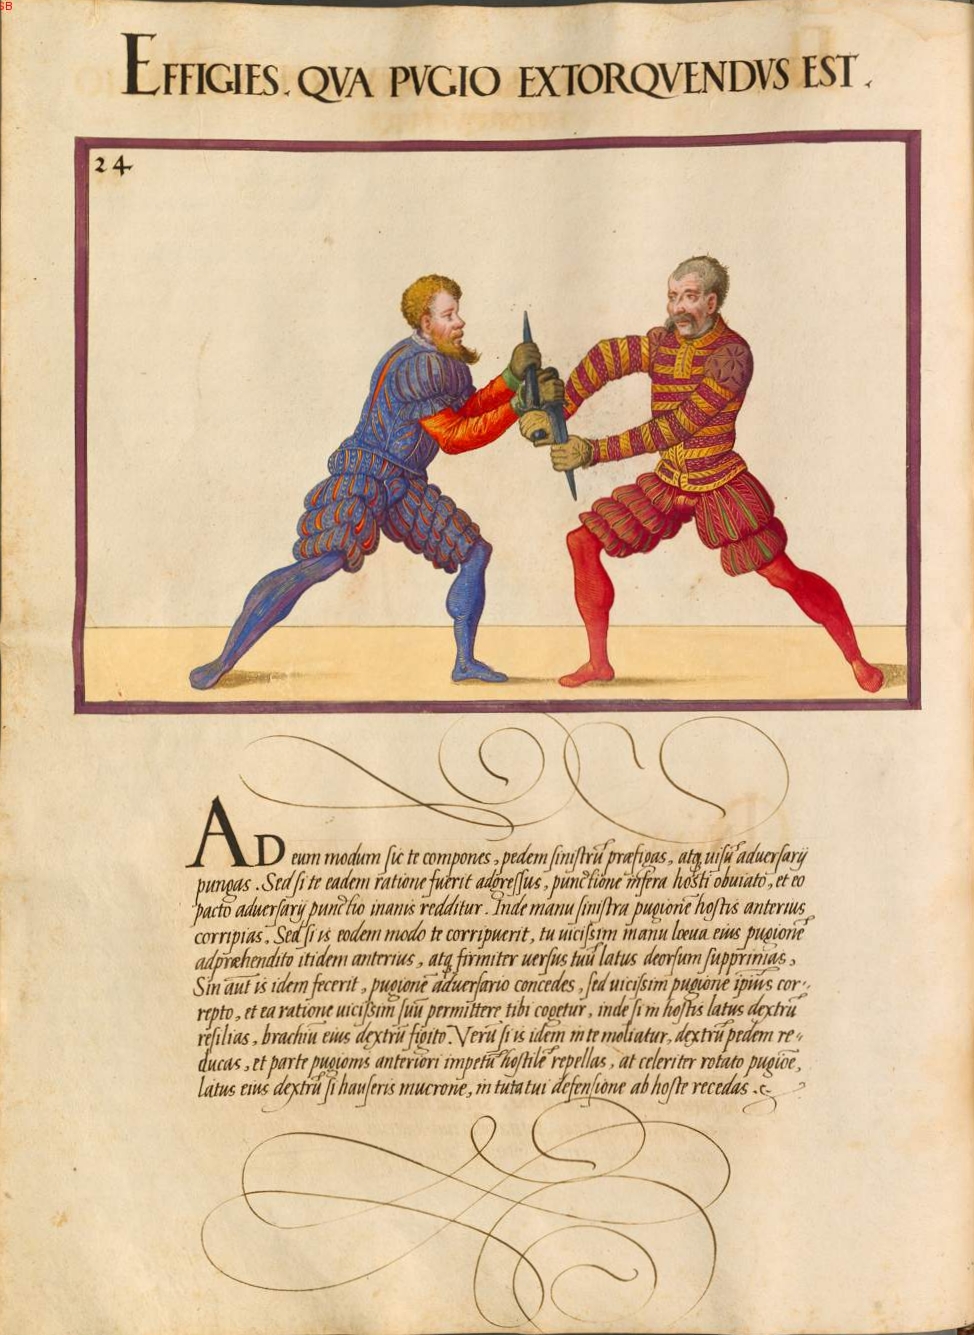 SB
EFFIGIES. QVA PVGIO EXTORQVENDVS EST.
24
AD eum modum sic te compones, pedem sinistrũ præfigas, atq̃ uisũ aduersarij
pungas. Sed si te eadem ratione fuerit adgressus, punctione infera hosti obuiato, et eo
pacto aduersarij punctio inanis redditur. Inde manu sinistra pugionẽ hostis anterius
corripias. Sed si is eodem modo te corripuerit, tu uicissim manu læua eius pugionẽ
adpræhendito itidem anterius, atq̃ firmiter uersus tuũ latus deorsum supprimas,
Sin aũt is idem fecerit, pugionẽ aduersario concedes, sed uicissim pugione ipsius cor-
repto, et ea ratione uicissim suũ permittere tibi cogetur, inde si in hostis latus dextrũ
resilias, brachiũ eius dextrũ figito. Verũ si is idem in te moliatur, dextrũ pedem re-
ducas, et parte pugionis anteriori impetũ hostilẽ repellas, at celeriter rotato pugiõe,
latus eius dextrũ si hauseris mucrone, in tuta tui defensione ab hoste recedas.